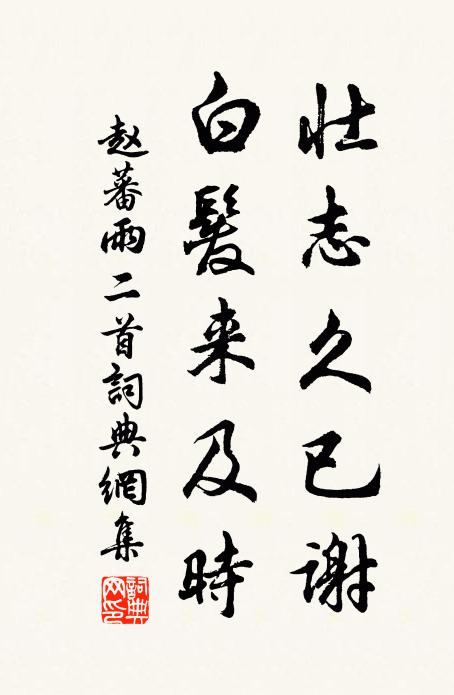 壮志久已谢
白髮来及時
赵蕃雨二首詞典網集
詞典網印